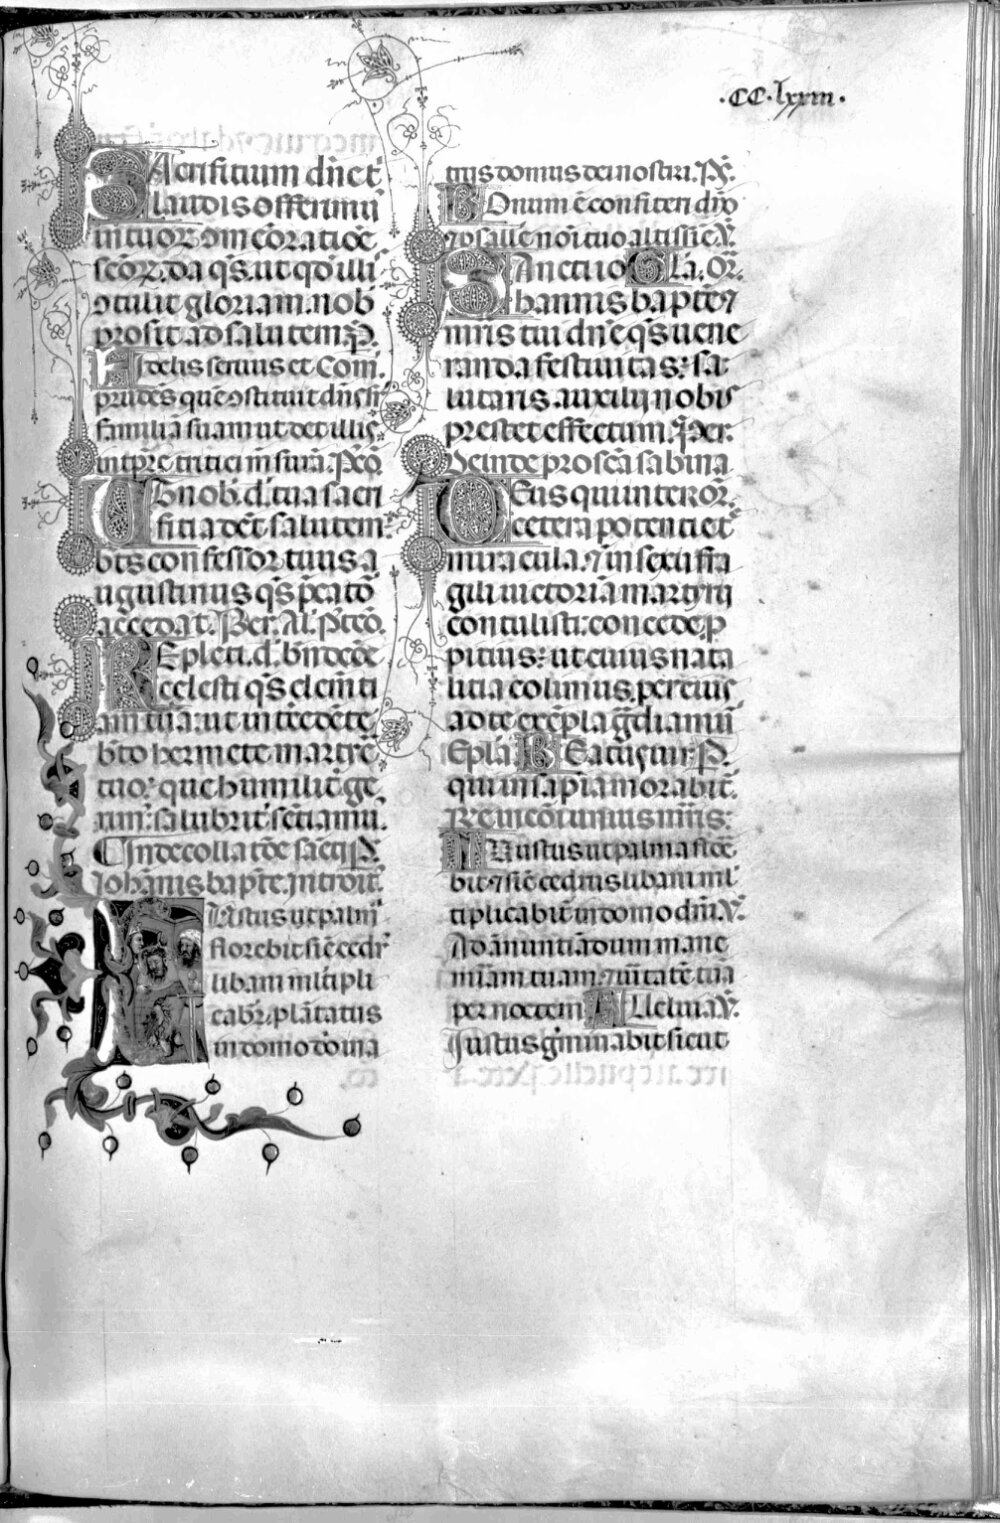 .CC.lxxiii.
Sacrifitium dn̄e t
laudis offerimꝰ
in tuoꝝ om̄eōratiōe
scōꝝ. da q̄s. ut qd̓ illi
ꝯtulit gloriam. nob̓
prosit ad salutem. P.
Fidelis seruus et Com̄.
prudēs quē ꝯstituit dn̄s sr̄
familiā suam ut det illis
in tp̄re tritici mēsurā. P̄cō.
Ut nob̓. d̓. tua sacri
fitia dēt salutem:
bt̄s confessor tuus a
ugustinus q̄s p̄cator̄
accedat. Per. Al̓. p̄tcō.
Repleti. d̓. bn̄dcōe
celesti q̄s clem̄ti
am tuā: ut int̓cedēte
bt̄o hermete martyr̄e
tuo: que humilit̓ ge
rim̄: salubrit̓ sētiamꝰ.
In decollatōe sācti
Johānis bap̄te. Introit̓.
Iustus ut palm̄
florebit sic̄ cedr̓
libani ml̓tipli
cabr̄. plātatus
in domo domi
tris domus dei nostri. P̄s̄.
Bonum ē confiteri dn̄o
⁊ psalle nōi tuo altissie. V̄.
Sancti io Gl̓a. Or̄.
hannis bapte ⁊
mr̄is tui dn̄e q̄s uene
randa festiuitas: sa
lutaris auxilij nobis
prestet effectum. Per.
Deinde pro scā sabina
Deus qui inter or̄
cetera potentie t
miracula. ⁊ in sexu fra
gili uictoriā martyrij
contulisti: concede. ꝓ
pitius: ut cuius nata
litia colimus. per eius
ad te exēpla gr̄diamur̄
Epl̓a. Beatus uir. P.
qui in sapīa morabit̓.
Rē in cōī unius mr̄is:
Iustus ut palma flor̄e
bit ⁊ sic̄ cedrus libani ml̓
tiplicabit̓ in domo dn̄i. V̄.
Ad ānuntiādum mane
miām tuam. ⁊ ūitatē tuā
per noctem Alleluia. V̄.
Iustus ḡminabit sicut